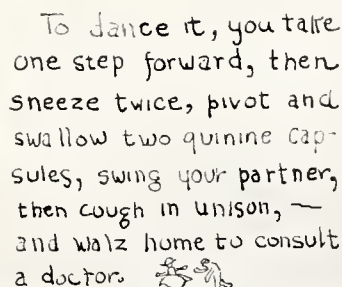 To dance it, you take
one step forward, then
sneeze twice, pivot and
swallow two quinine cap-
sules, swing your partner,
then cough in unison, —
and walz home to consult
a doctor.